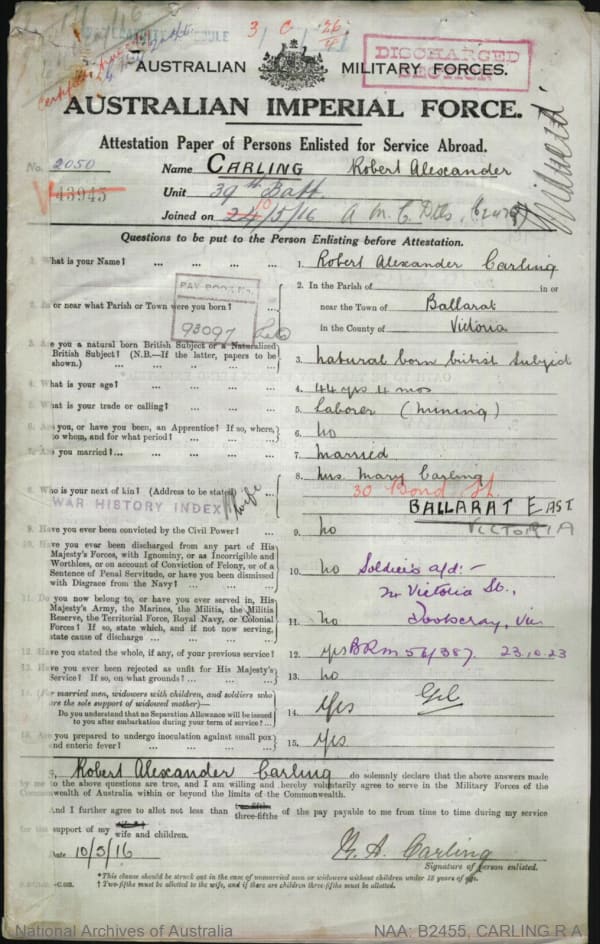 3 C 26
DISCHARGED
SECTION
AUSTRALIAN MILITARY FORCES.
AUSTRALIAN IMPERIAL FORCE.
Attestation Paper of Persons Enlisted for Service Abroad.
No. 2050 Name CARLING Robert Alexander
43945
Unit 39th Batt.
Joined on 24/5/16 10
Questions to be put to the Person Enlisting before Attestation.
1. What is your Name? ... ... ... ... 1. Robert Alexander Carling
2. In the Parish of in or
2. In or near what Parish or Town were you born? near the Town of Ballarat
in the County of Victoria
93097
3. Are you a natural born British Subject or a Naturalized
British Subject? (N.B.—If the latter, papers to be
shown.) 3. natural born british subject
4. What is your age? 4. 44 yrs 4 mos
5. What is your trade or calling? 5. Laborer (Mining)
6. Are you, or have you been, an Apprentice? If so, where,
to whom, and for what period? 6. no
7. Are you married?... 7. married
8. Mrs. Mary Carling
8. Who is your next of kin? (Address to be stated) wife 30 Bond St.
WAR HISTORY INDEX
BALLARAT EAST
VICTORIA
9. Have you ever been convicted by the Civil Power? 9. no
10. Have you ever been discharged from any part of His
Majesty's Forces, with Ignominy, or as Incorrigible and
Worthless, or on account of Conviction of Felony, or of a
Sentence of Penal Servitude, or have you been dismissed
with Disgrace from the Navy? 10. no
Soldiers a/d:-
Victoria St.,
Footscray, Vic
11. Do you now belong to, or have you ever served in, His
Majesty's Army, the Marines, the Militia, the Militia
Reserve, the Territorial Force, Royal Navy, or Colonial
Forces? If so, state which, and if not now serving,
state cause of discharge 11. no
12. Have you stated the whole, if any, of your previous service? 12. yes BRM 56/387. 23.10.23
13. Have you ever been rejected as unfit for His Majesty's
Service? If so, on what grounds? 13. no
14. (For married men, widowers with children, and soldiers who
are the sole support of widowed mother)—
Do you understand that no Separation Allowance will be issued
to you after embarkation during your term of service? 14. Yes
15. Are you prepared to undergo inoculation against small pox
and enteric fever? 15. Yes
I, Robert Alexander Carling do solemnly declare that the above answers made
by me to the above questions are true, and I am willing and hereby voluntarily agree to serve in the Military Forces of the
Commonwealth of Australia within or beyond the limits of the Commonwealth.
And I further agree to allot not less than three-fifths of the pay payable to me from time to time during my service
for the support of my wife and children.
Date 10/5/16 R. A. Carling
Signature of person enlisted.
*This clause should be struck out in the case of unmarried men or widowers without children under 18 years of age.
† Two-fifths must be allotted to the wife, and if there are children three-fifths must be allotted.
National Archives of Australia NAA: B2455, CARLING R A